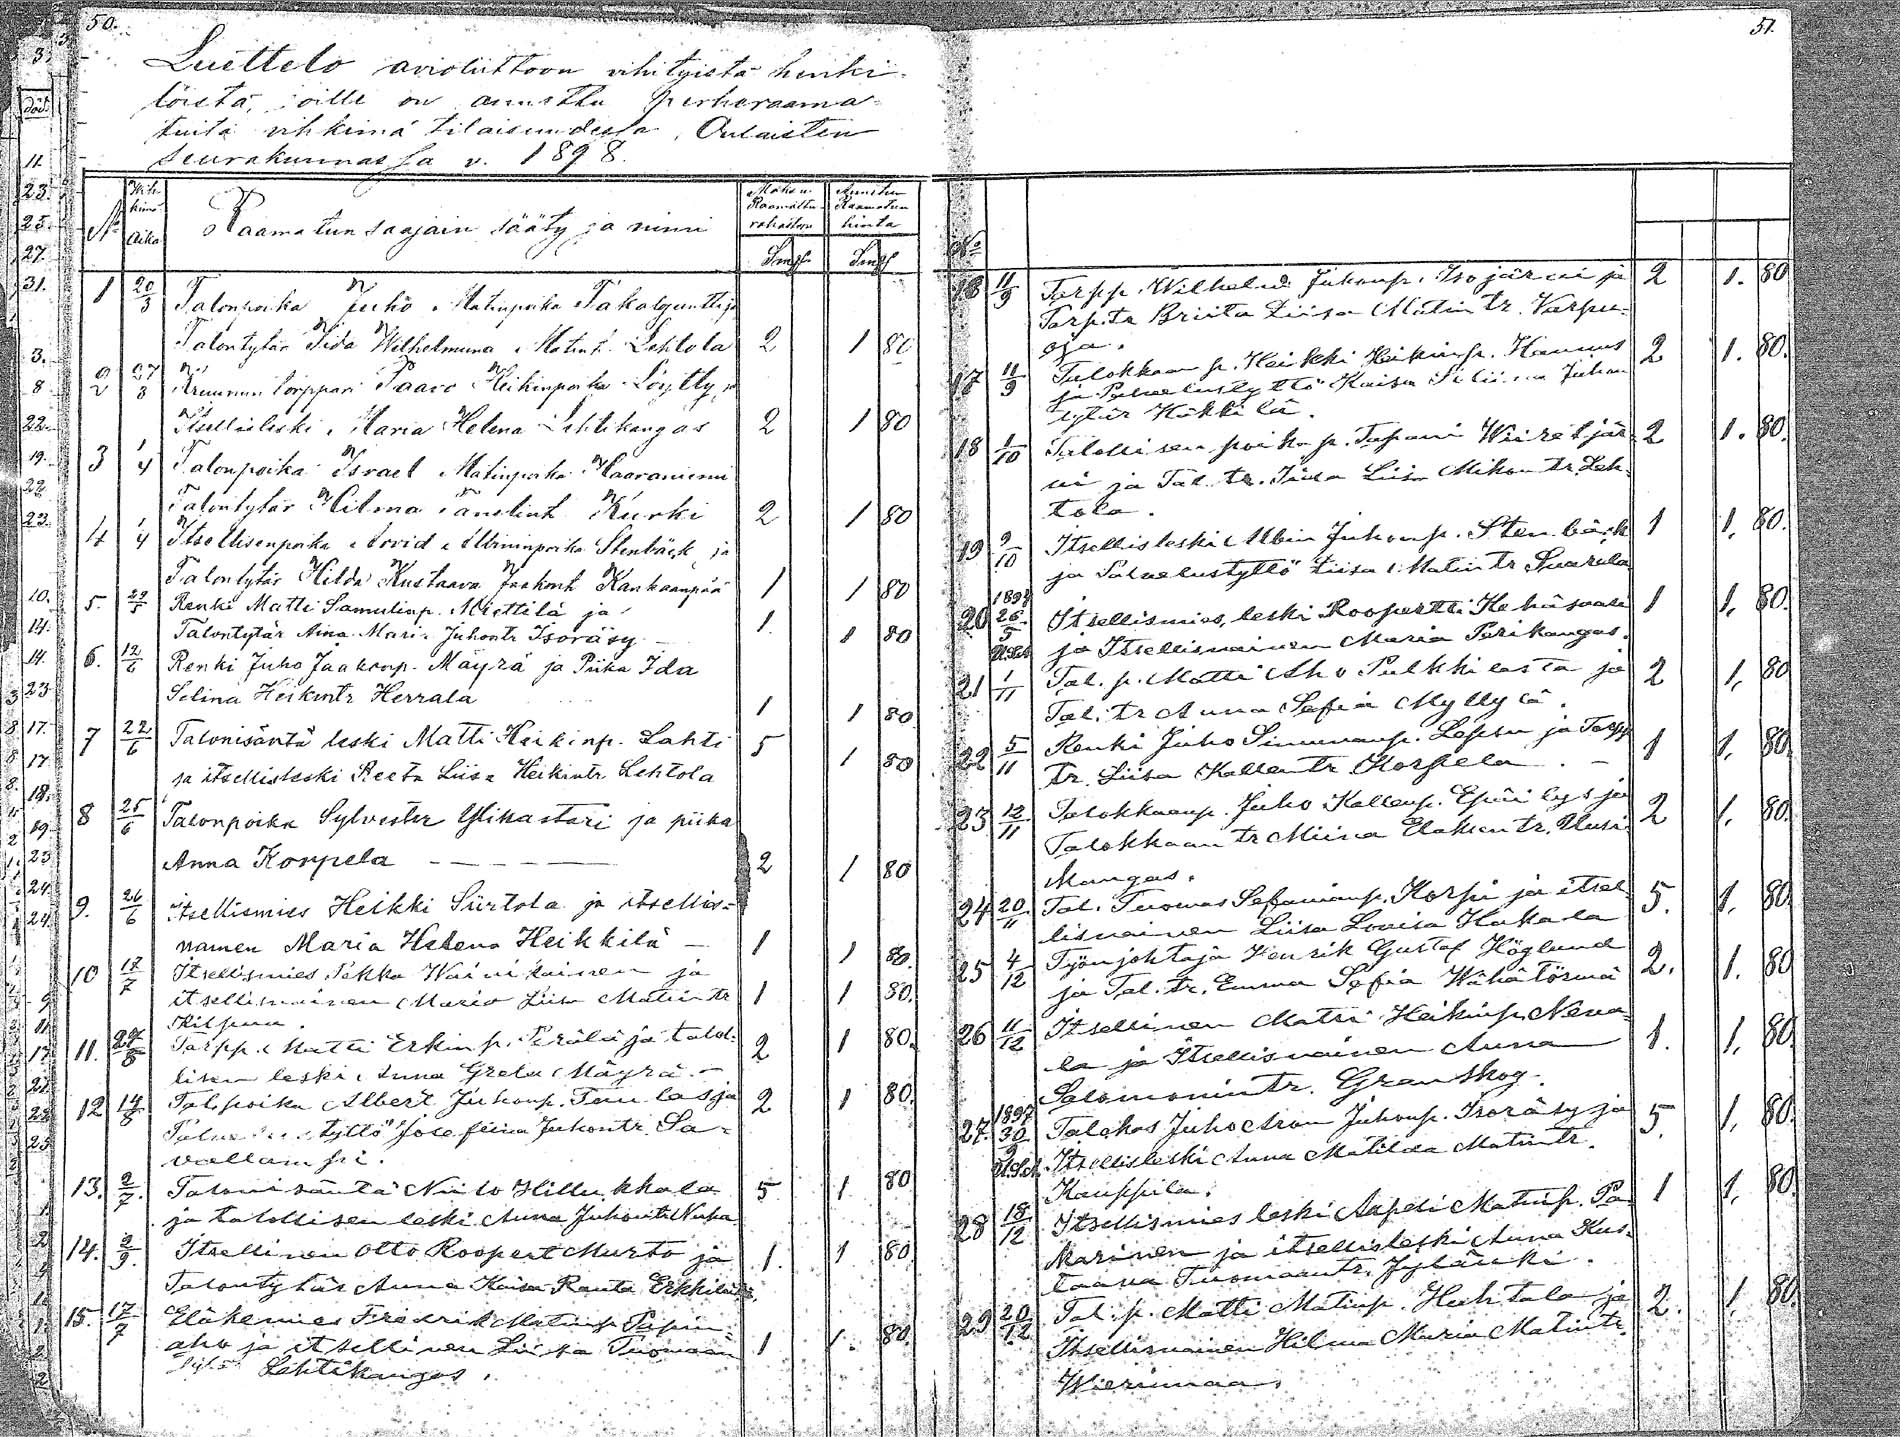 50.
Luettelo avioliittoon vihityistä henki-
löistä, joille on annettu perheraama-
tuita vihkimä tilaisuudessa, Oulaisten
seurakunnassa v. 1898.
No Wih-kimä Aika Raamatun saajain sääty ja nimi Maksu Raamattu-rahastoon Annetun Raamatun hinta
Smf Smf
1 20/3 Talonpoika Juho Matinpoika Takalo ja
Talontytär Iida Wilhelmina Matint. Lehtola 2 1 80
2 27/3 Kruunun torppari Paavo Heikinpoika Löytty ja
Itsellisleski Maria Helena Lehtikangas 2 1 80
3 1/4 Talonpoika Israel Matinpoika Haaraniemi
Talontytär Hilma Tanelint. Kurki 2 1 80
4 1/4 Itsellisenpoika Arvid Albininpoika Stenbäck ja
Talontytär Hilda Kustaava Jaakont. Kankaanpää 1 1 80
5. 29/5 Renki Matti Samulinp. Miettilä ja
Talontytär Aina Maria Juhontr Isoräsy 1. 1 80
6. 12/6 Renki Juho Jaakonp. Mäyrä ja Piika Ida
Selina Heikintr Herrala 1 1 80
7 22/6 Talonisäntä leski Matti Heikinp. Lahti 5 1 80
ja itsellisleski Reeta Liisa Heikintr. Lehtola
8 25/6 Talonpoika Sylvester Ylikastari ja piika
Anna Korpela 2 1 80
9. 26/6 Itsellismies Heikki Siirtola ja itsellis-
nainen Maria Helena Heikkilä 1 1 80.
10 17/7 Itsellismies Pekka Wainikainen ja
itsellisnainen Maria Liisa Matintr 1 1 80.
Kilpua.
11. Torpp. Matti Erkinp. Perälä ja talol-
lisen leski Anna Greta Mäyrä. 2 1 80.
12 14/8 Tal.poika Albert Juhonp. ja 2 1 80.
Palvelustyttö Josefiina Juhontr. Sa-
vallampi.
13. 2/7. Talonisäntä Niilo Hillukkala 5 1 80
ja talollisen leski Anna Juhontr
14. 2/9. Itsellinen Otto Roopert Murto ja 1. 1 80
Talontytär Anna Kaisa Ranta Erkkilä
15. 17/7 Eläkemies Fredrik Matinp.
aho ja itsellinen Liisa Tuomaan 1 1. 80.
Lehtikangas.
51.
No
11/9 Torpp. Wilhelmi Juhonp. Isojärvi ja 2 1. 80
Torp.tr Briita Liisa Matintr. Varpu-
oja.
17 11/9 Talokkaan p. Heikki Heikinp. Hannus 2 1. 80.
ja Palvelustyttö Kaisa Juhon
tytär Häkkilä.
18 1/10 Talollisen poika p. Tapani Wiiretjär- 2 1. 80.
vi ja Tal. tr. Liisa Mikontr. Leh-
tola.
19 9/10 Itsellisleski Albin Juhonp. Stenbäck 1 1, 80.
ja Palvelustyttö Liisa Matintr Suarala
20 189 26/5 Itsellismies, leski Roopertti Kehäsaari 1 1, 80.
ja Itsellisnainen Maria Perikangas.
21 1/11 Tal. p. Matti Aho Pulkkilasta ja 2 1, 80
Tal. tr Anna Sofia Myllylä.
22 5/11 Renki Juho Simunanp. ja Torpp 1 1, 80
tr. Liisa Kallentr Korpela.
23 12/11 Talokkaanp. Juho Kallenp. Epäilys ja 2 1, 80.
Talokkaan tr Miina Uusi
kangas.
24 20/11 Tal. Tuomas Sefanianp. Korpi ja itsel- 5. 1, 80
lisnainen Liisa Lovisa Hakala
25 4/12 Työnjohtaja Henrik Gustaf Höglund 2. 1. 80
ja Tal. tr. Emma Sofia Wähätörmä
26 11/12 Itsellinen Matti Heikinp. Neva- 1. 1, 80
la ja Itsellisnainen Anna
Salomonintr. Granskog.
27. 1897 30/9 Talokas Juho Aron Juhonp. Isoräsy ja 5. 1, 80
Itsellisleski Anna Matilda Matintr.
Kauppila.
28 18/12 Itsellismies leski Aapeli Matinp. Pa- 1 1, 80.
karinen ja itsellisleski Anna Kus-
taava Tuomaantr. Jyläuki.
29 20/12 Tal. p. Matti Matinp. Huhtala ja 2. 1. 80.
Itsellisnainen Hilma Maria Matintr.
Wierimaa.